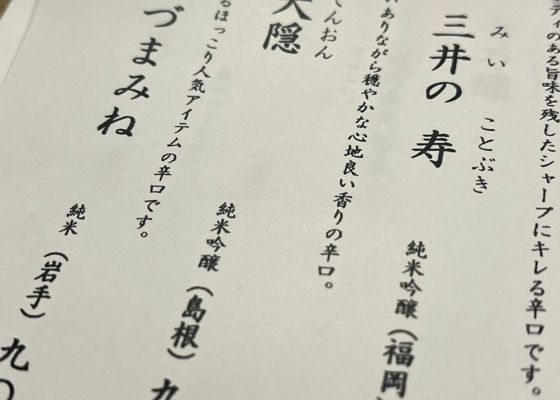 ティのある旨味を残したシャープにキレる辛口です。
みい ことぶき
三井の 寿 純米吟醸（福岡
ありながら穏やかな心地良い香りの辛口。
んおん
隠 純米吟醸（島根）九
るほっこり人気アイテムの辛口です。
づまみね 純米（岩手）九〇